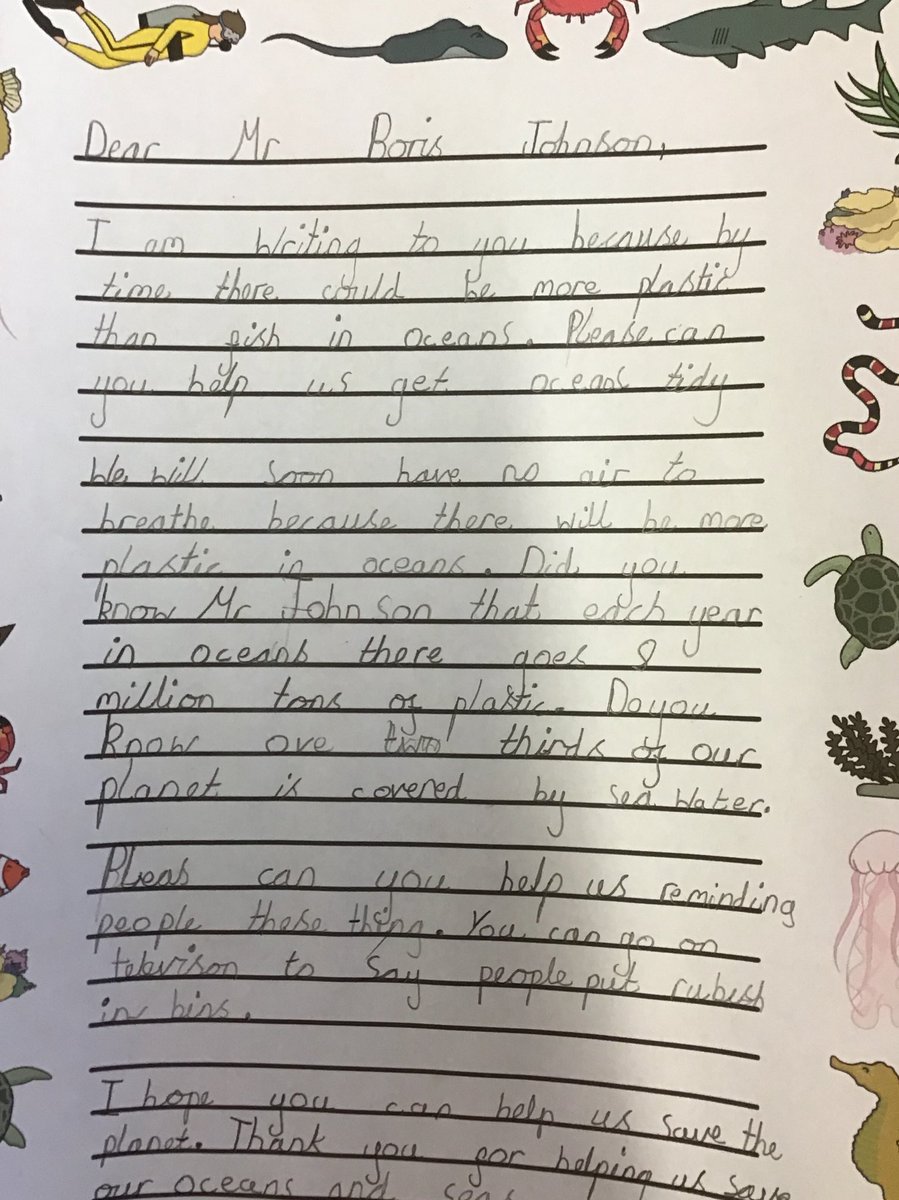 Dear Mr Boris Johnson,
I am writing to you because by
time there could be more plastic
than fish in oceans. Please can
you help us get oceans tidy
We will soon have no air to
breathe because there will be more
plastic in oceans. Did you
know Mr Johnson that each year
in oceans there goes 8
million tons of plastic. Do you
know ove two thirds of our
planet is covered by sea water.
Pleas can you help us reminding
people these thing. You can go on
televison to say people put rubish
in bins.
I hope you can help us save the
planet. Thank you for helping us save
our oceans and seas